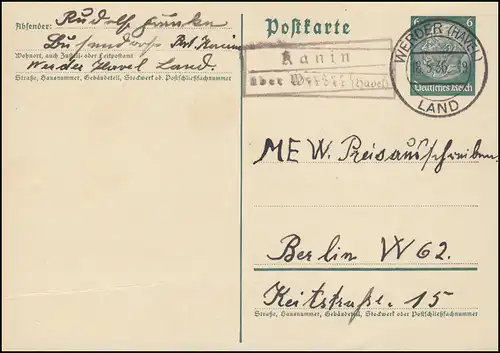 Absender: Rudolf
Busendorf Post Kanin
Wohnort, auch Zustell- oder Leitpostamt
Werder Havel Land.
Straße, Hausnummer, Gebäudeteil, Stockwerk od. Postschließfachnummer
Postkarte
Kanin
über Werder (Havel)
6
Deutsches Reich
WERDER (HAVEL)
18.5.36.
LAND
MEW. Preisausschreiben.
Berlin W 62.
Keitstraße. 15
Straße, Hausnummer, Gebäudeteil, Stockwerk oder Postschließfachnummer